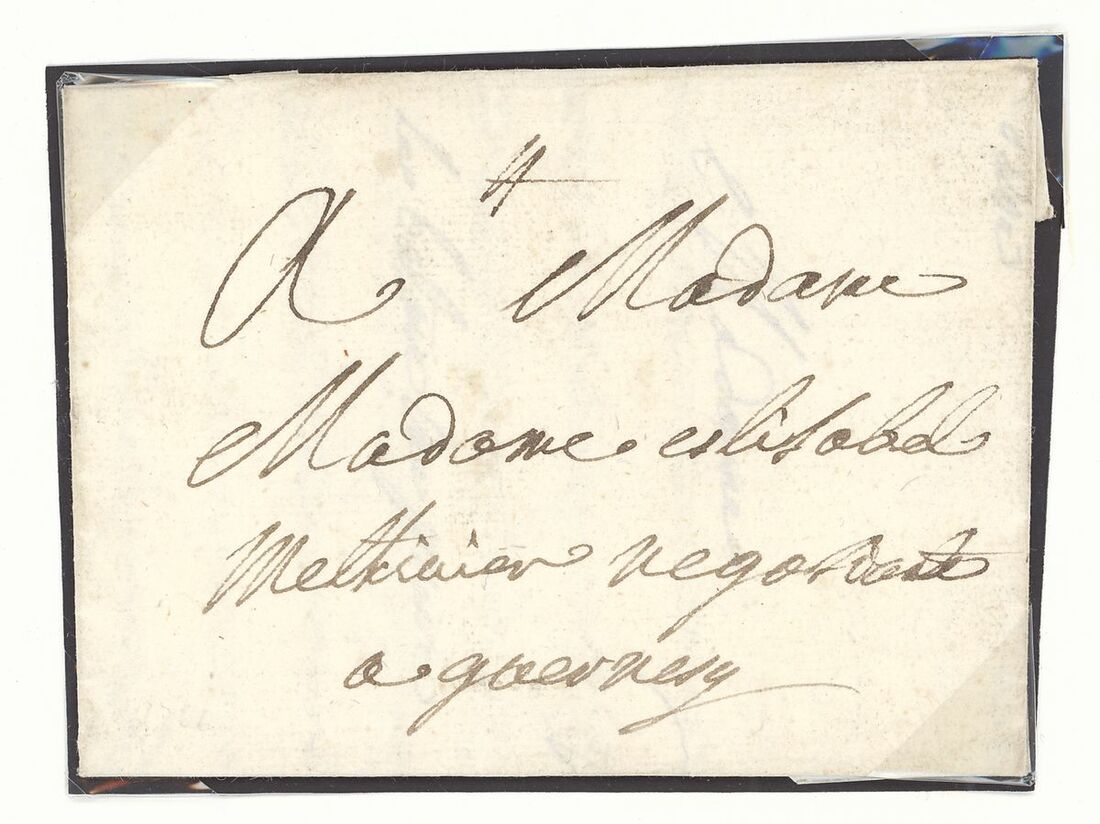 4
A Madame
Madame elisabel
Mettivier negosiente
a guernesy